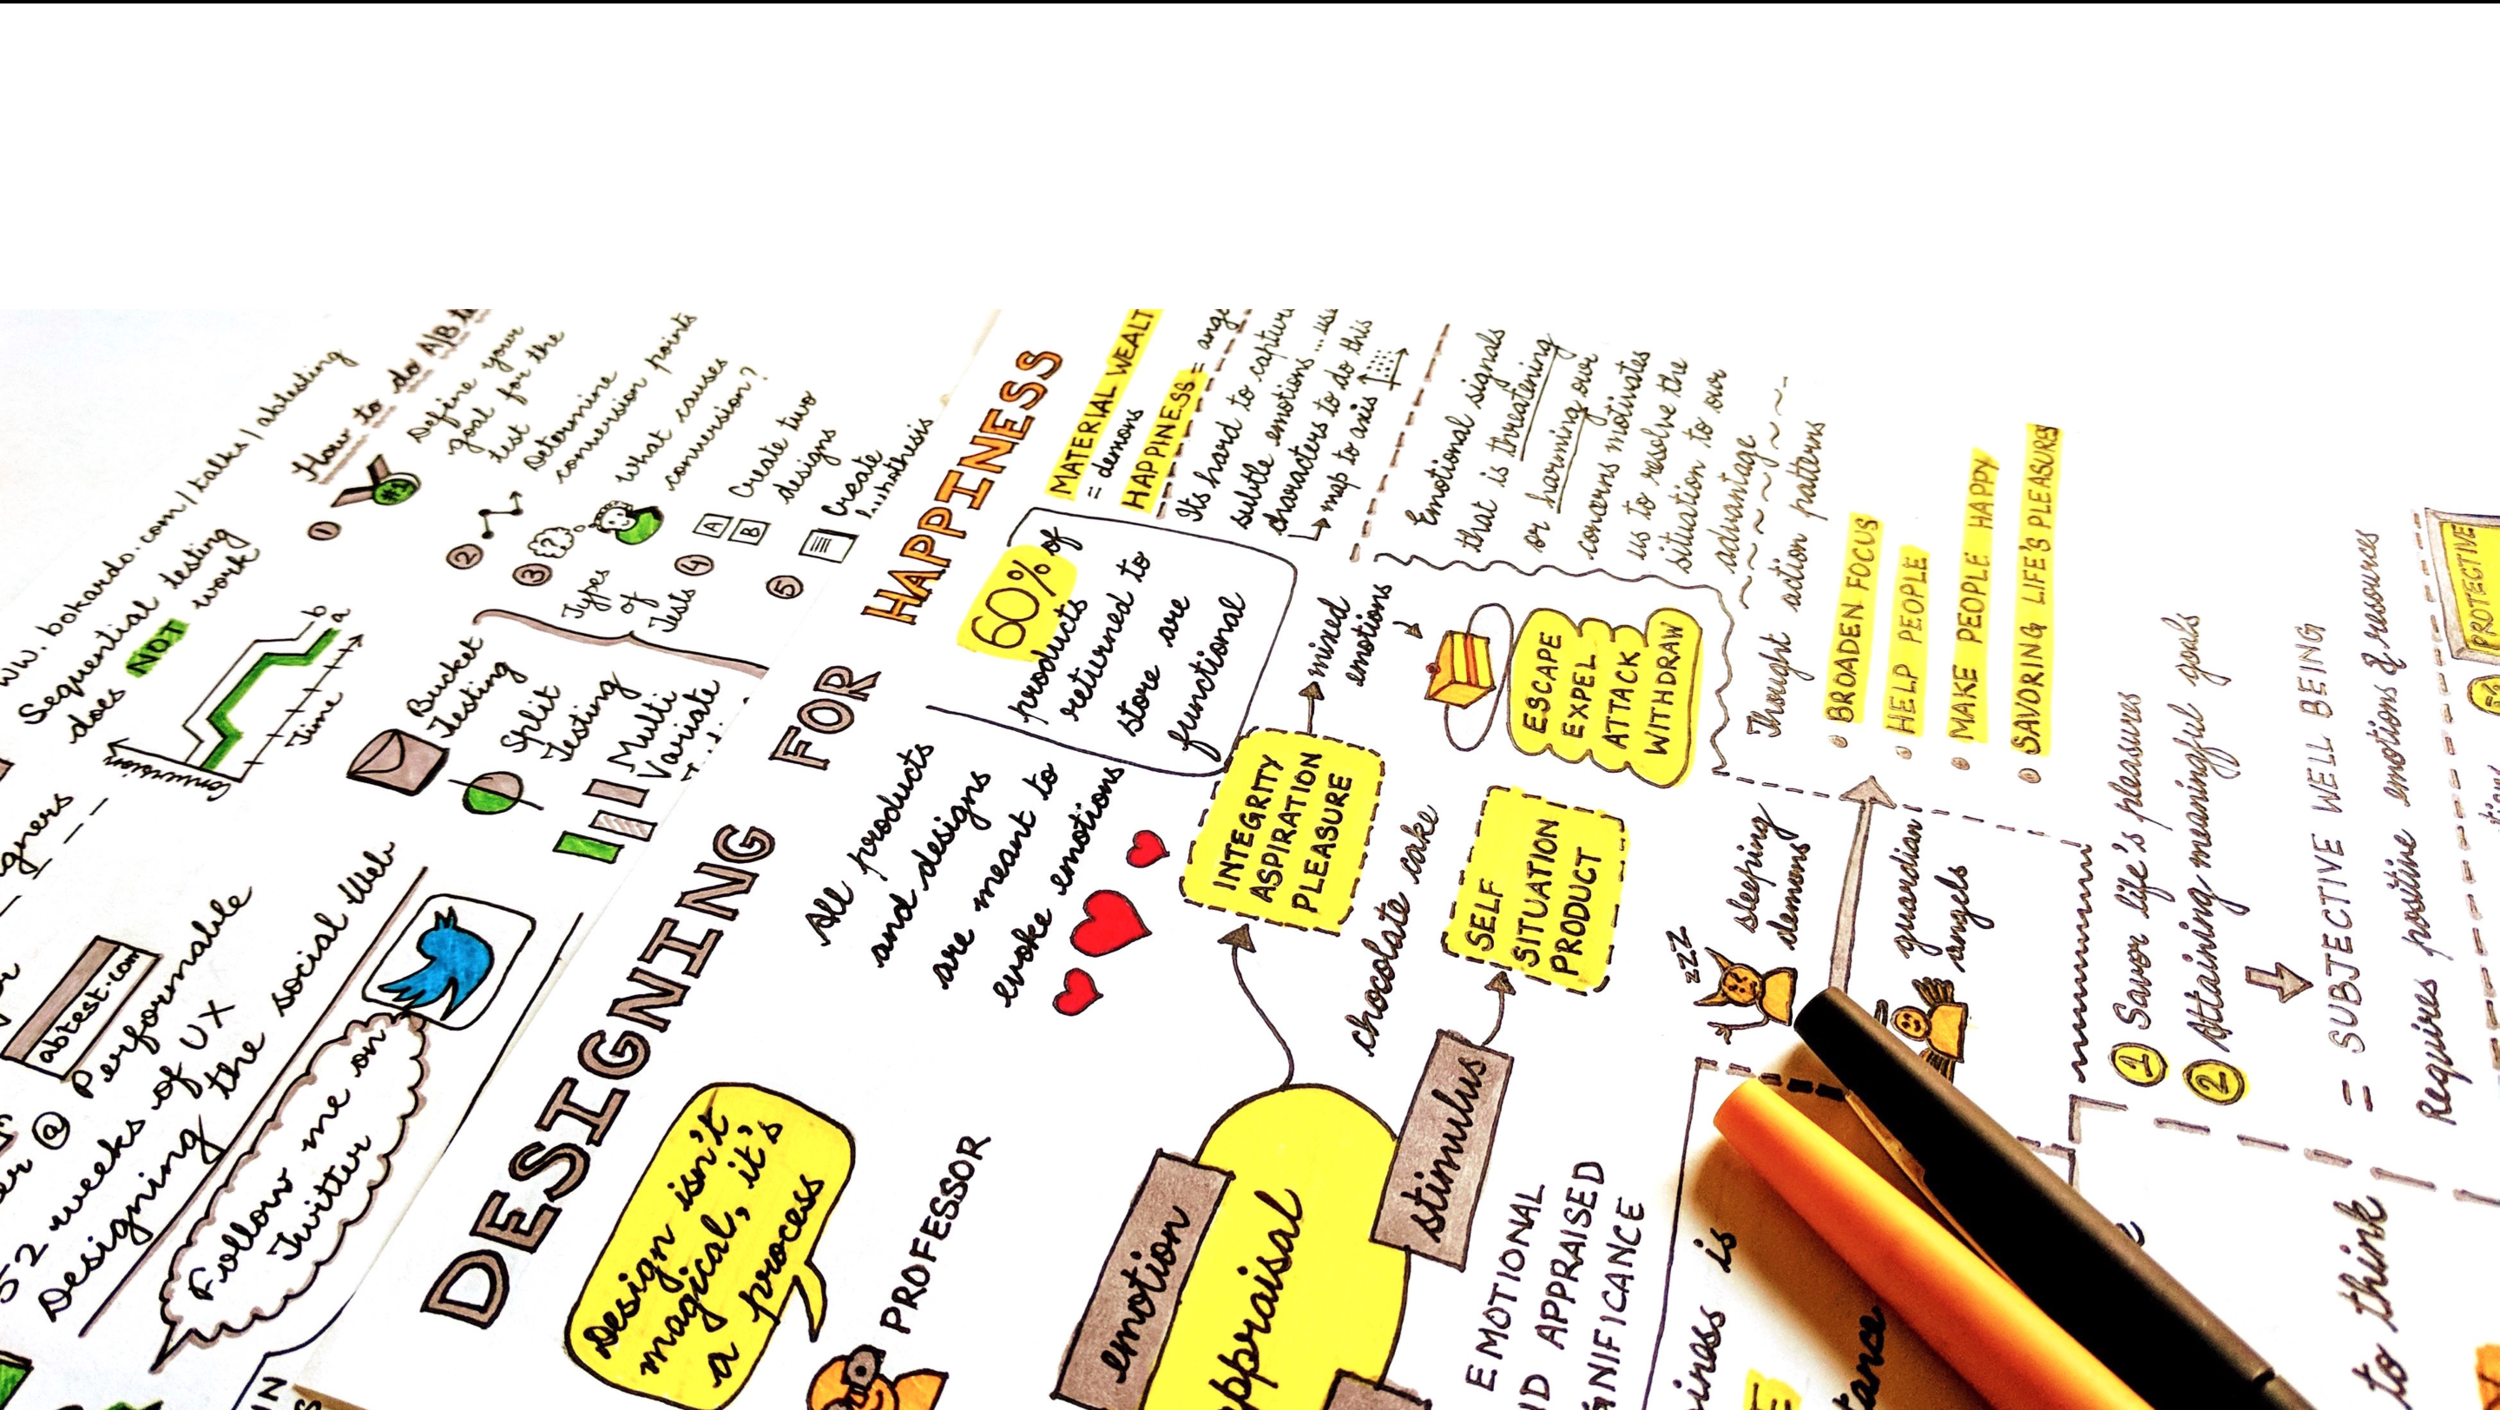 www.bookards.com/talks/abtesting
Sequential testing
does NOT work
Conversion
Time
b
a
How to do A/B
1
#1
Define your
goal for the
test
2
Determine
conversion points
3
?
What causes
conversion?
4
A
B
Create two
designs
5
Create
Types
of
Tests
Bucket
Testing
Split
Testing
Multi
Variate
abtest.com
@ Performable
52 weeks of UX
Designing the social Web
Follow me on
Twitter
DESIGNING FOR HAPPINESS
Design isn't
magical, it's
a process
PROFESSOR
All products
and designs
are meant to
evoke emotions
60% of
products
returned to
store are
functional
MATERIAL WEALT
= demons
HAPPINESS = ange
Its hard to captur
subtle emotions ... us
characters to do this
map to axis
INTEGRITY
ASPIRATION
PLEASURE
mixed
emotions
chocolate cake
SELF
SITUATION
PRODUCT
emotion
ppraisal
stimulus
EMOTIONAL
ND APPRAISED
GNIFICANCE
Emotional signals
that is threatening
or harming our
concerns motivates
us to resolve the
situation to our
advantage
ESCAPE
EXPEL
ATTACK
WITHDRAW
Thought action patterns
BROADEN FOCUS
HELP PEOPLE
MAKE PEOPLE HAPPY
SAVORING LIFE'S PLEASURES
zzZ
sleeping
demons
guardian
angels
1 Savor life's pleasures
2 Attaining meaningful goals
= SUBJECTIVE WELL BEING
Requires positive emotions & resources
PROTECTIVE
iness is
tance
to think